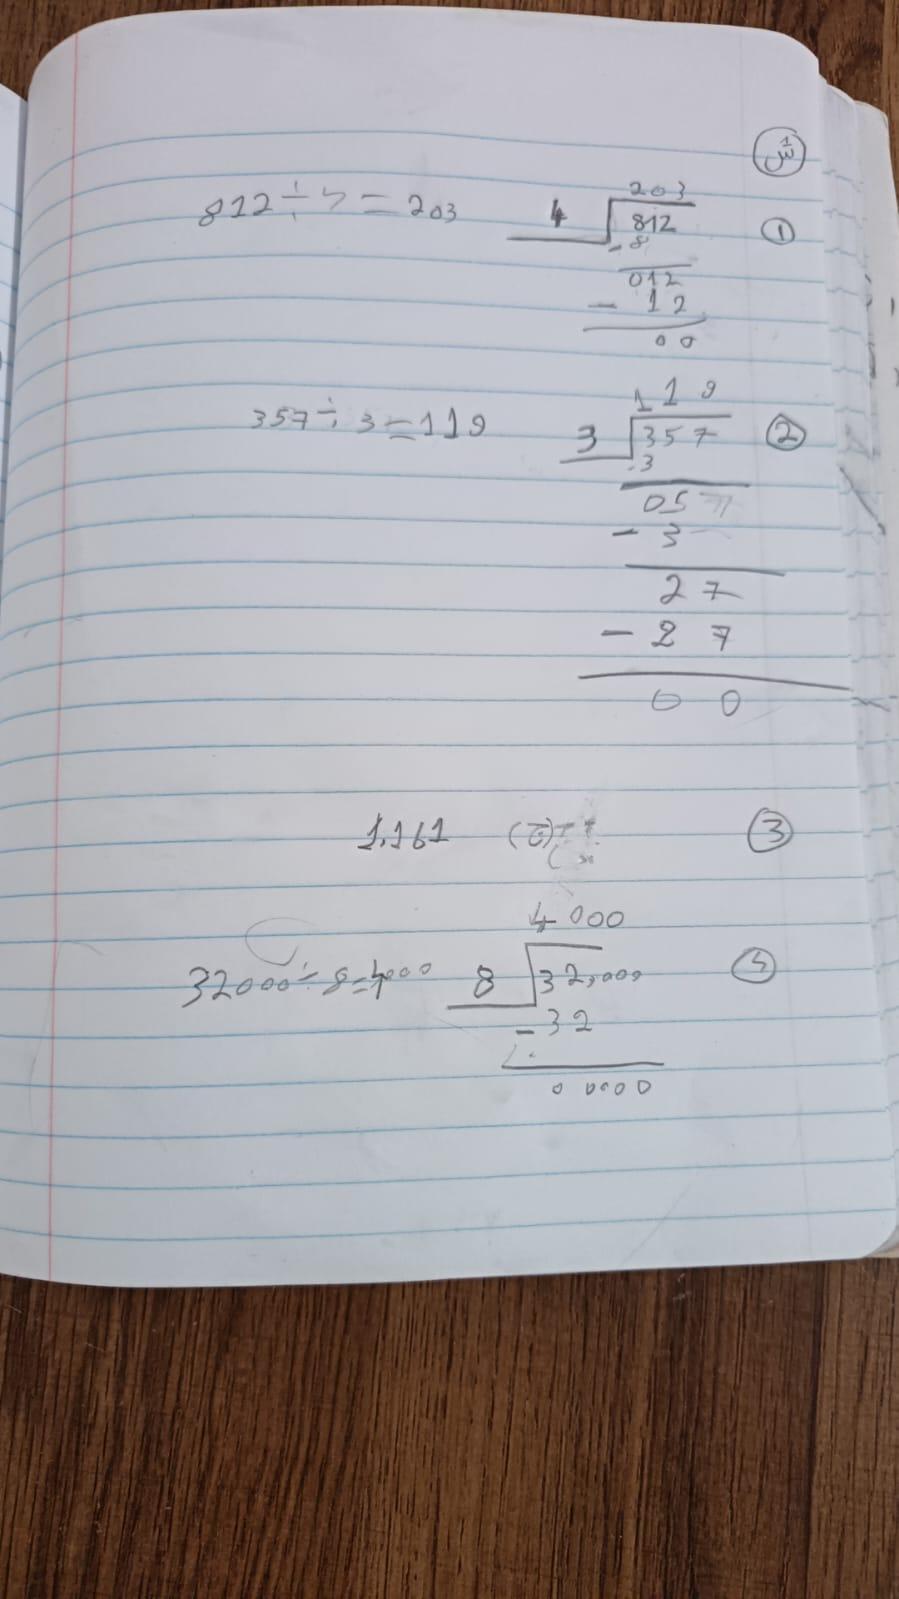 س1
① 4 812 203
812 ÷ 4 = 203
- 8
012
- 12
00
② 3 357 119
357 ÷ 3 = 119
- 3
057
- 3
27
- 27
00
③ (ج) 1,161
④ 8 32,000 4000
32000 ÷ 8 = 4000
- 32
00000